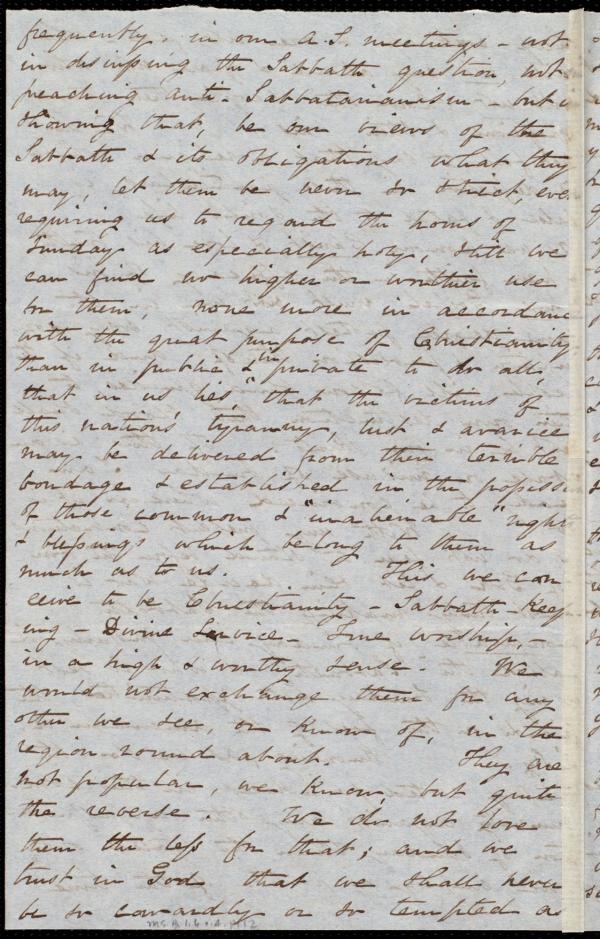 frequently, in our A.S. meetings - not
in discussing the Sabbath question, not
preaching anti-Sabbatarianism - but
showing that, be our views of the
Sabbath & its obligations what they
may, let them be never so strict, eve
requiring us to regard the hours of
Sunday as especially holy, still we
can find no higher or worthier use
for them, none more in accordanc
with the great purpose of Christianity
than in public & in private to do all,
that in us lies, that the victims of
this nation's tyranny, lust & avarice
may be delivered from their terrible
bondage & established in the possess
of those common & "inalienable" right
& blessings which belong to them as
much as to us. This we con
ceive to be Christianity - Sabbath-Keep
ing - Divine Service - True worship, -
in a high & worthy sense. We
would not exchange them for any
other we see, or know of, in the
region round about. They are
not popular, we know, but quite
the reverse. We do not love
them the less for that; and we
trust in God that we shall never
be so cowardly or so tempted as